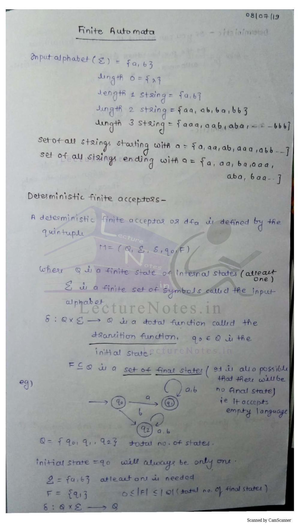 08/07/19
Finite Automata
Input alphabet (Σ) = {a,b}
length 0 = {λ}
length 1 string = {a,b}
length 2 string = {aa, ab, ba, bb}
length 3 string = {aaa, aab, aba, ... bbb}
set of all strings starting with a = {a, aa, ab, aaa, abb ...}
set of all strings ending with a = {a, aa, ba, aaa,
aba, baa ..}
Deterministic finite acceptors -
A deterministic finite acceptor or dfa is defined by the
quintuple
M = (Q, Σ, δ, q0, F)
where Q is a finite state of internal states (atleast
one)
Σ is a finite set of symbols called the input
alphabet
LectureNotes.in
δ : Q×Σ → Q is a total function called the
transition function, q0 ∈ Q is the
initial state
F ⊆ Q is a set of final states (it is also possible
that there will be
no final state)
ie it accepts
empty language
eg)
q0 a q1 a,b
b
q2 a,b
Q = {q0, q1, q2} total no. of states.
Initial state = q0 will always be only one.
Σ = {a,b} atleast one is needed
F = {q1} 0 ≤ |F| ≤ |Q| (total no of final states)
δ : Q×Σ → Q
Scanned by CamScanner